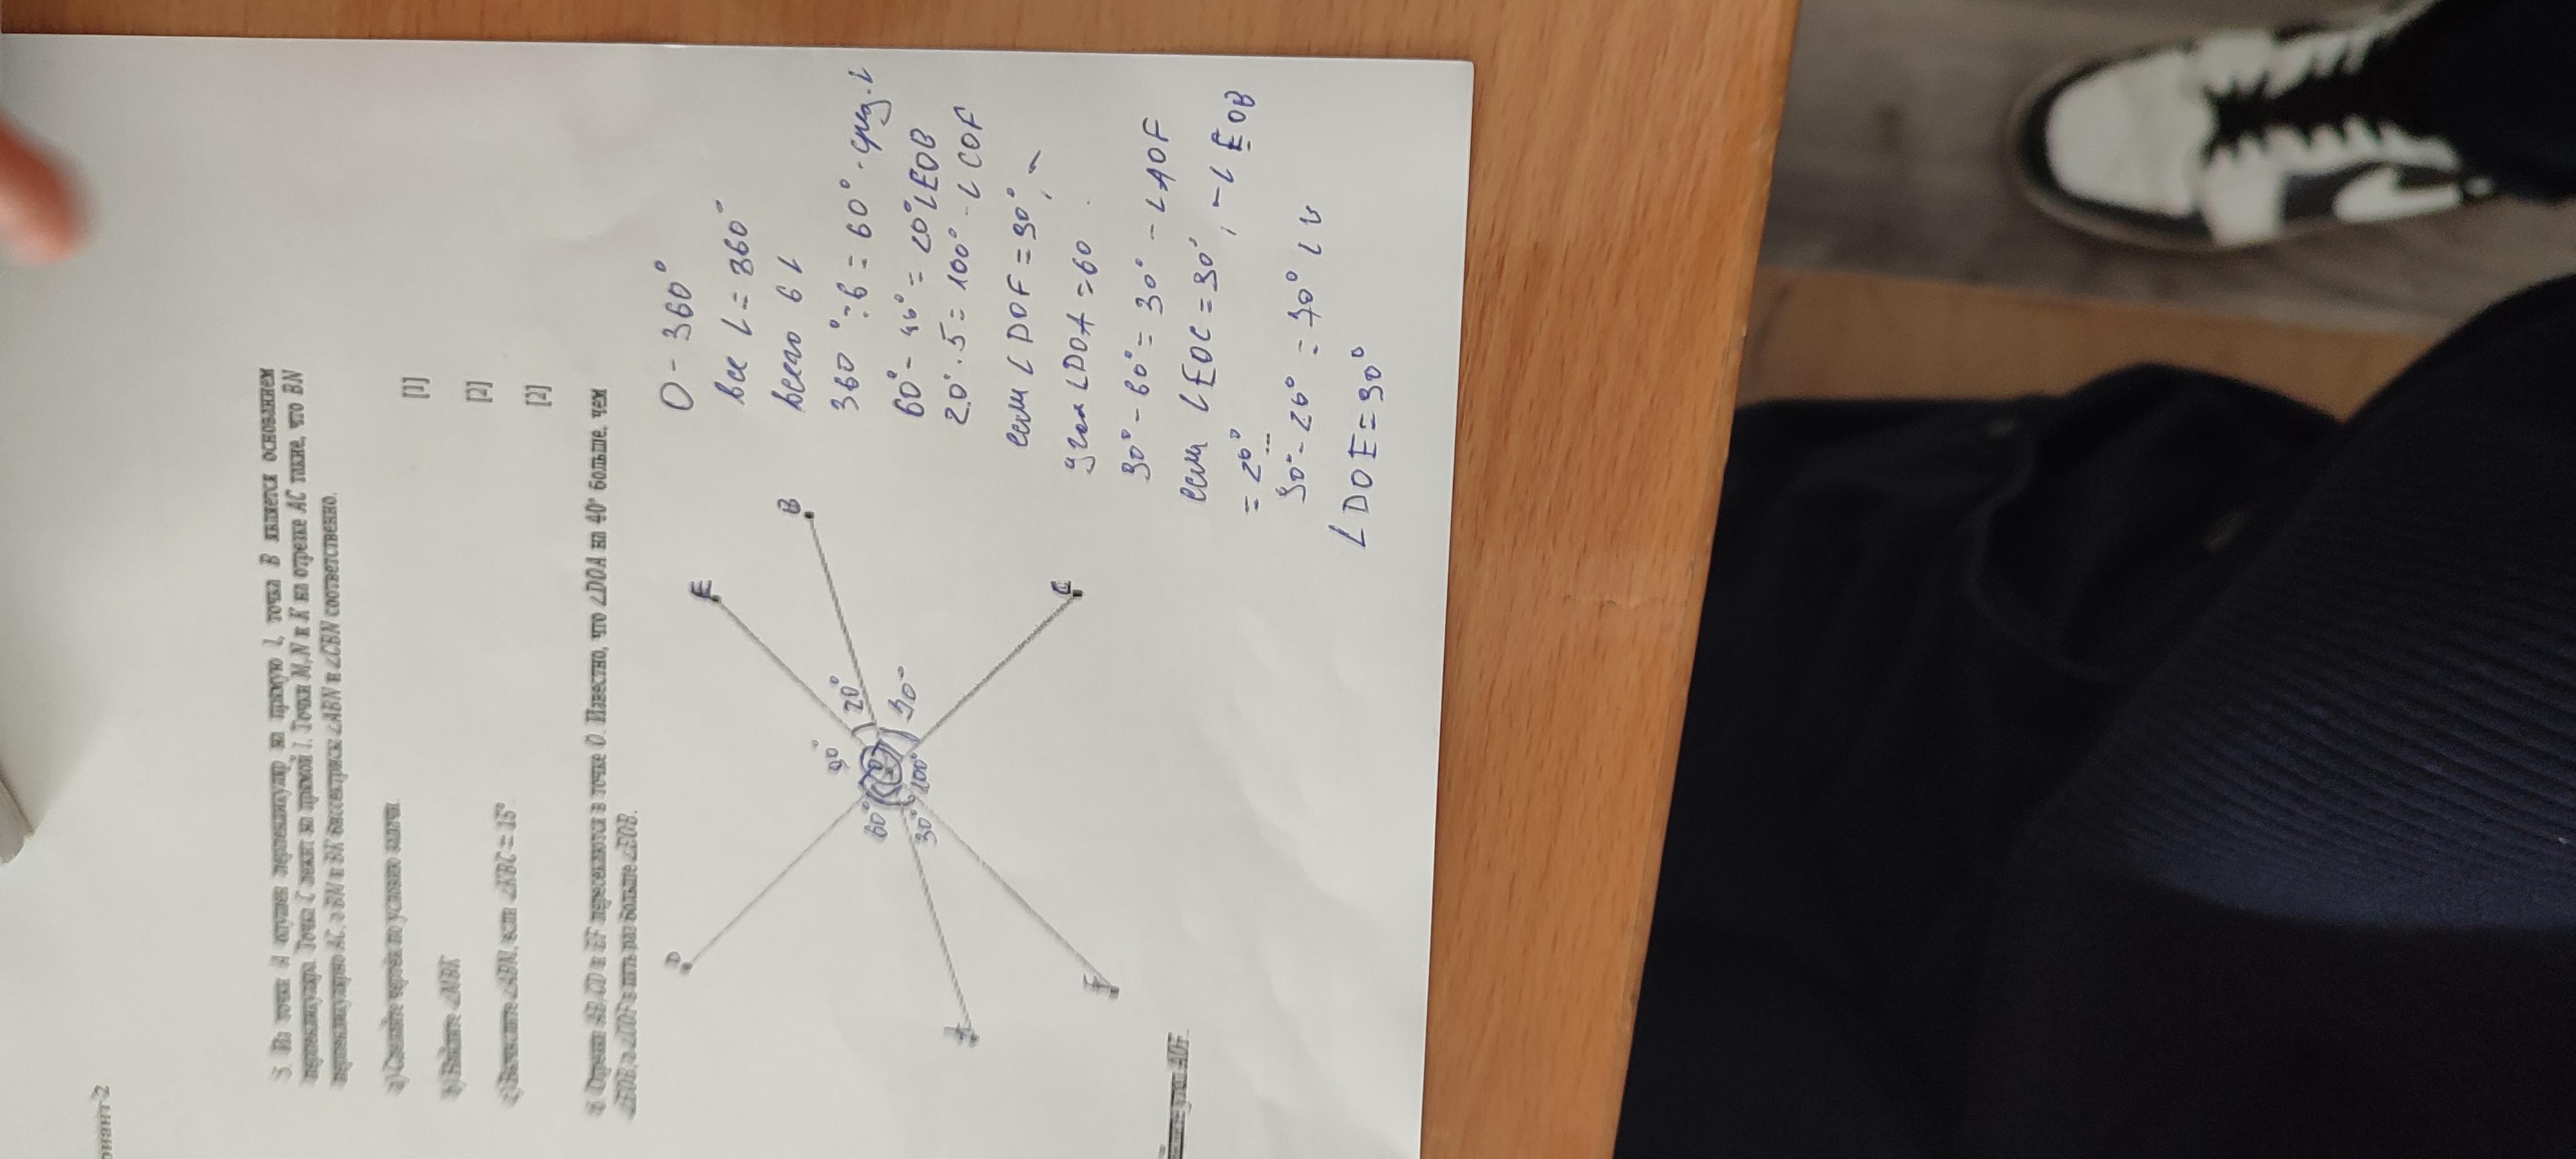 5. Из точки A опущен перпендикуляр на прямую l, точка B является основанием
перпендикуляра. Точка C лежит на прямой l. Точки M, N и K на отрезке AC такие, что BN
перпендикулярно AC, а BM и BK биссектрисы ∠ABN и ∠CBN соответственно.
a) Сделайте чертёж по условию задачи. [1]
b) Найдите ∠MBK [2]
c) Вычислите ∠ABN, если ∠KBC = 15°. [2]
6 Отрезки AB, CD и EF пересекаются в точке O. Известно, что ∠DOA на 40° больше, чем
∠EOB, а ∠COF в пять раз больше ∠EOB.
D
E
B
A
F
C
90°
20°
60°
30°
100°
O - 360°
все L = 360°
всего 6 L
360° : 6 = 60°
60° - 40° = 20° LEOB
20° . 5 = 100° - L COF
если L DOF = 90°
угол LDOA = 60
90° - 60° = 30° - LAOF
если L EOC = 90° , - L EOB
= 20°
90° - 20° = 70° L
L DOE = 90°
угол AOF.